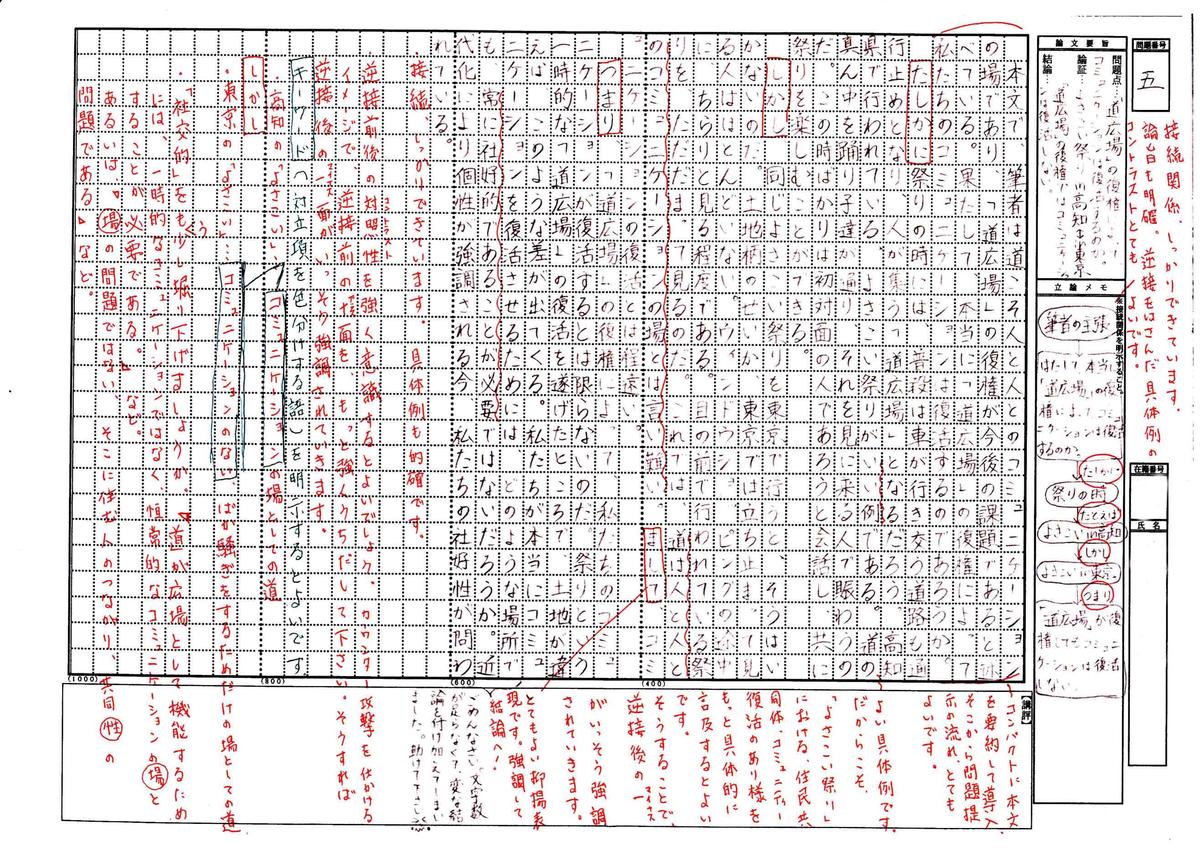 問題番号
五
接続関係、しっかりできています。
論旨も明確。逆接をはさんだ具体例の
コントラストとてもよいです。
論文要旨
問題点
論証
結論
立論メモ
筆者の主張
はたして、本当に
「道広場」の復
権によってコミュ
ニケーションは復活
するのか。
たしかに
祭りの時
たとえば
よさこいin高知
しかし
よさこいin東京
つまり
「道広場」が復
権してもコミュニ
ケーションは復活
しない。
在籍番号
氏名
本文で、筆者は道こそ人と人とのコミュニケーション
の場であり、「道広場」の復権が今後の課題であると述
べている。果たして、本当に「道広場」の復権によって
私たちのコミュニケーションは復活するのであろうか。
たしかに祭りの時には、普段は車が行き交う道路も通
行止めとなり、人が集う「道広場」となる。高知
県で行われている「よさこい祭り」がいい例である。道の
真ん中を踊り子達が通り、それを見に来る人で賑わうの
だ。この時は初対面の人であろうと会話し、共に
祭りを楽しむことができる。
しかし、同じよさこい祭りを東京で行うと、そうはい
かないのだ。土地柄か、東京では立ち止まって見
る人はほとんどいない。ウィンドウショッピングの途中
にちらりと見る程度である。目の前で行われている祭
りをただただ「見る」のだ。これでは、道は人と人と
のコミュニケーションの場とは言い難い。ましてコミ
ュニケーションの復活とは程遠い。
つまり、「道広場」の復権によって、私たちのコミュ
ニケーションが復活するとは限らないのだ。祭りという
一時的な「道広場」の復活を遂げたところで、土地が違
えばこのような差が出てくる。私たちが本当にコミュ
ニケーションを復活させるためには、どのような場所で
も、常に社好的であることが必要ではないだろうか。近
代化により個性が強調される今、私たちの社好性が問わ
れている。
(400)
(600)
(800)
(1000)
・接続、しっかりできています。具体例も的確です。
・逆接前後の対照性を強く意識するとよいでしょう。カウンター攻撃を仕かける
コントラスト
イメージで、逆接前の一面をもっと強く打ちだして下さい。そうすれば
逆接後の一面が、いっそう強調されていきます。
マイナス
キーワード(対立項を色分けする語)を明示するとよいです。
・高知の「よさこい」…コミュニケーションの場としての道
しかし
・東京の「よさこい」…コミュニケーションのない、ばか騒ぎをするためだけの場としての道
・「社交的」をもう少し掘り下げましょうか。「道」が広場として機能するため
には、一時的なコミュニケーションではなく、恒常的なコミュニケーションの場と
することが必要である。」など。
あるいは、「場の問題ではない、そこに住む人のつながり、共同性の
問題である」など。
【講評】
コンパクトに本文
を要約して導入。
そこから問題提
示の流れ、とても
よいです。
よい具体例です。
だからこそ、
「よさこい祭り」
における、住民共
同体、コミュニティー
復活のあり様を
もっと具体的に
言及するとよい
です。
そうすることで、
逆接後の一
マイナス
がいっそう強調
されていきます。
とてもよい抑揚表
現です。強調して
結論へ!
ごめんなさい。文字数
が足らなくて、変な結
論を付け加えてしまい
ました。助けて下さい。